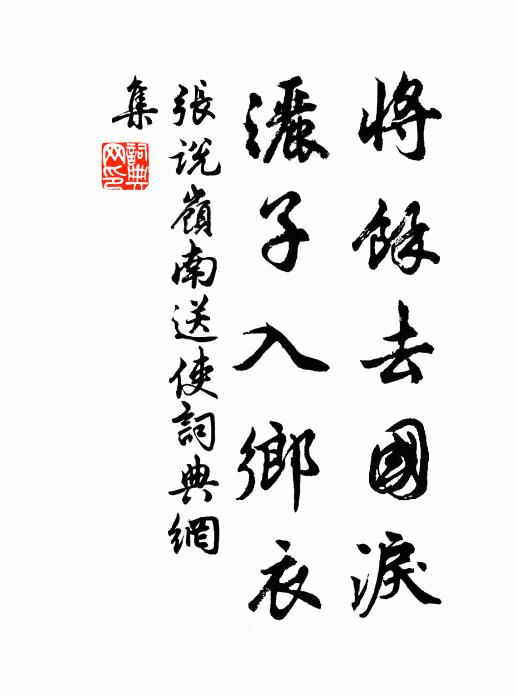 將餘去國淚
灑子入鄉衣
張說嶺南送使詞典網
集
詞典
网印